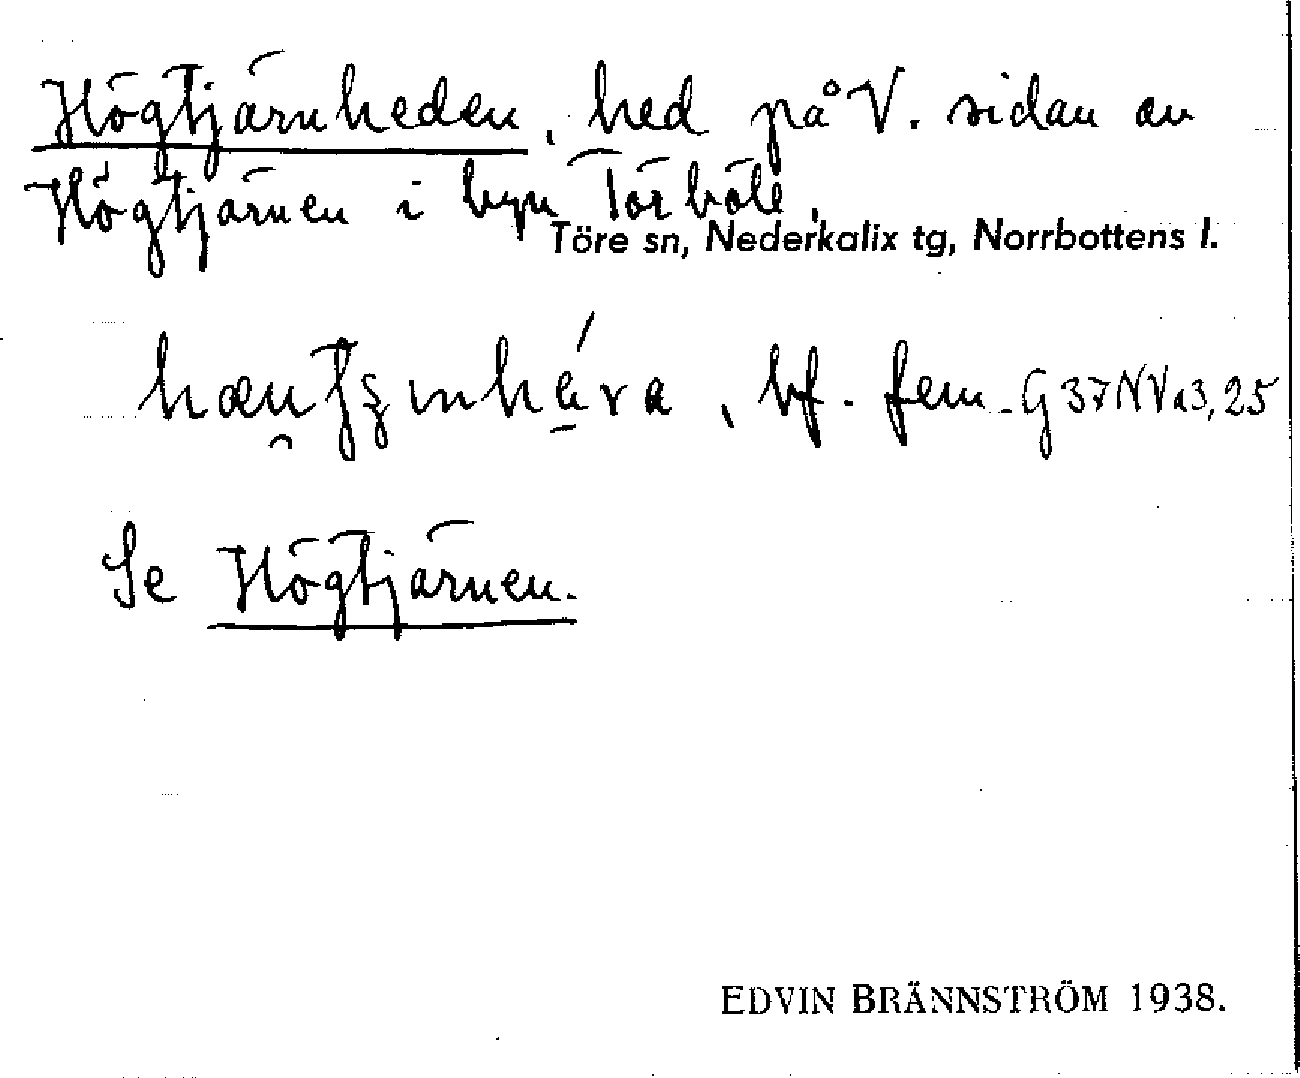 Högtjärnheden, hed på V. sidan av
Högtjärnen i byn Törböle.
Töre sn, Nederkalix tg, Norrbottens l.
, bf. fem. G37NVa3,25
Se Högtjärnen.
EDVIN BRÄNNSTRÖM 1938.